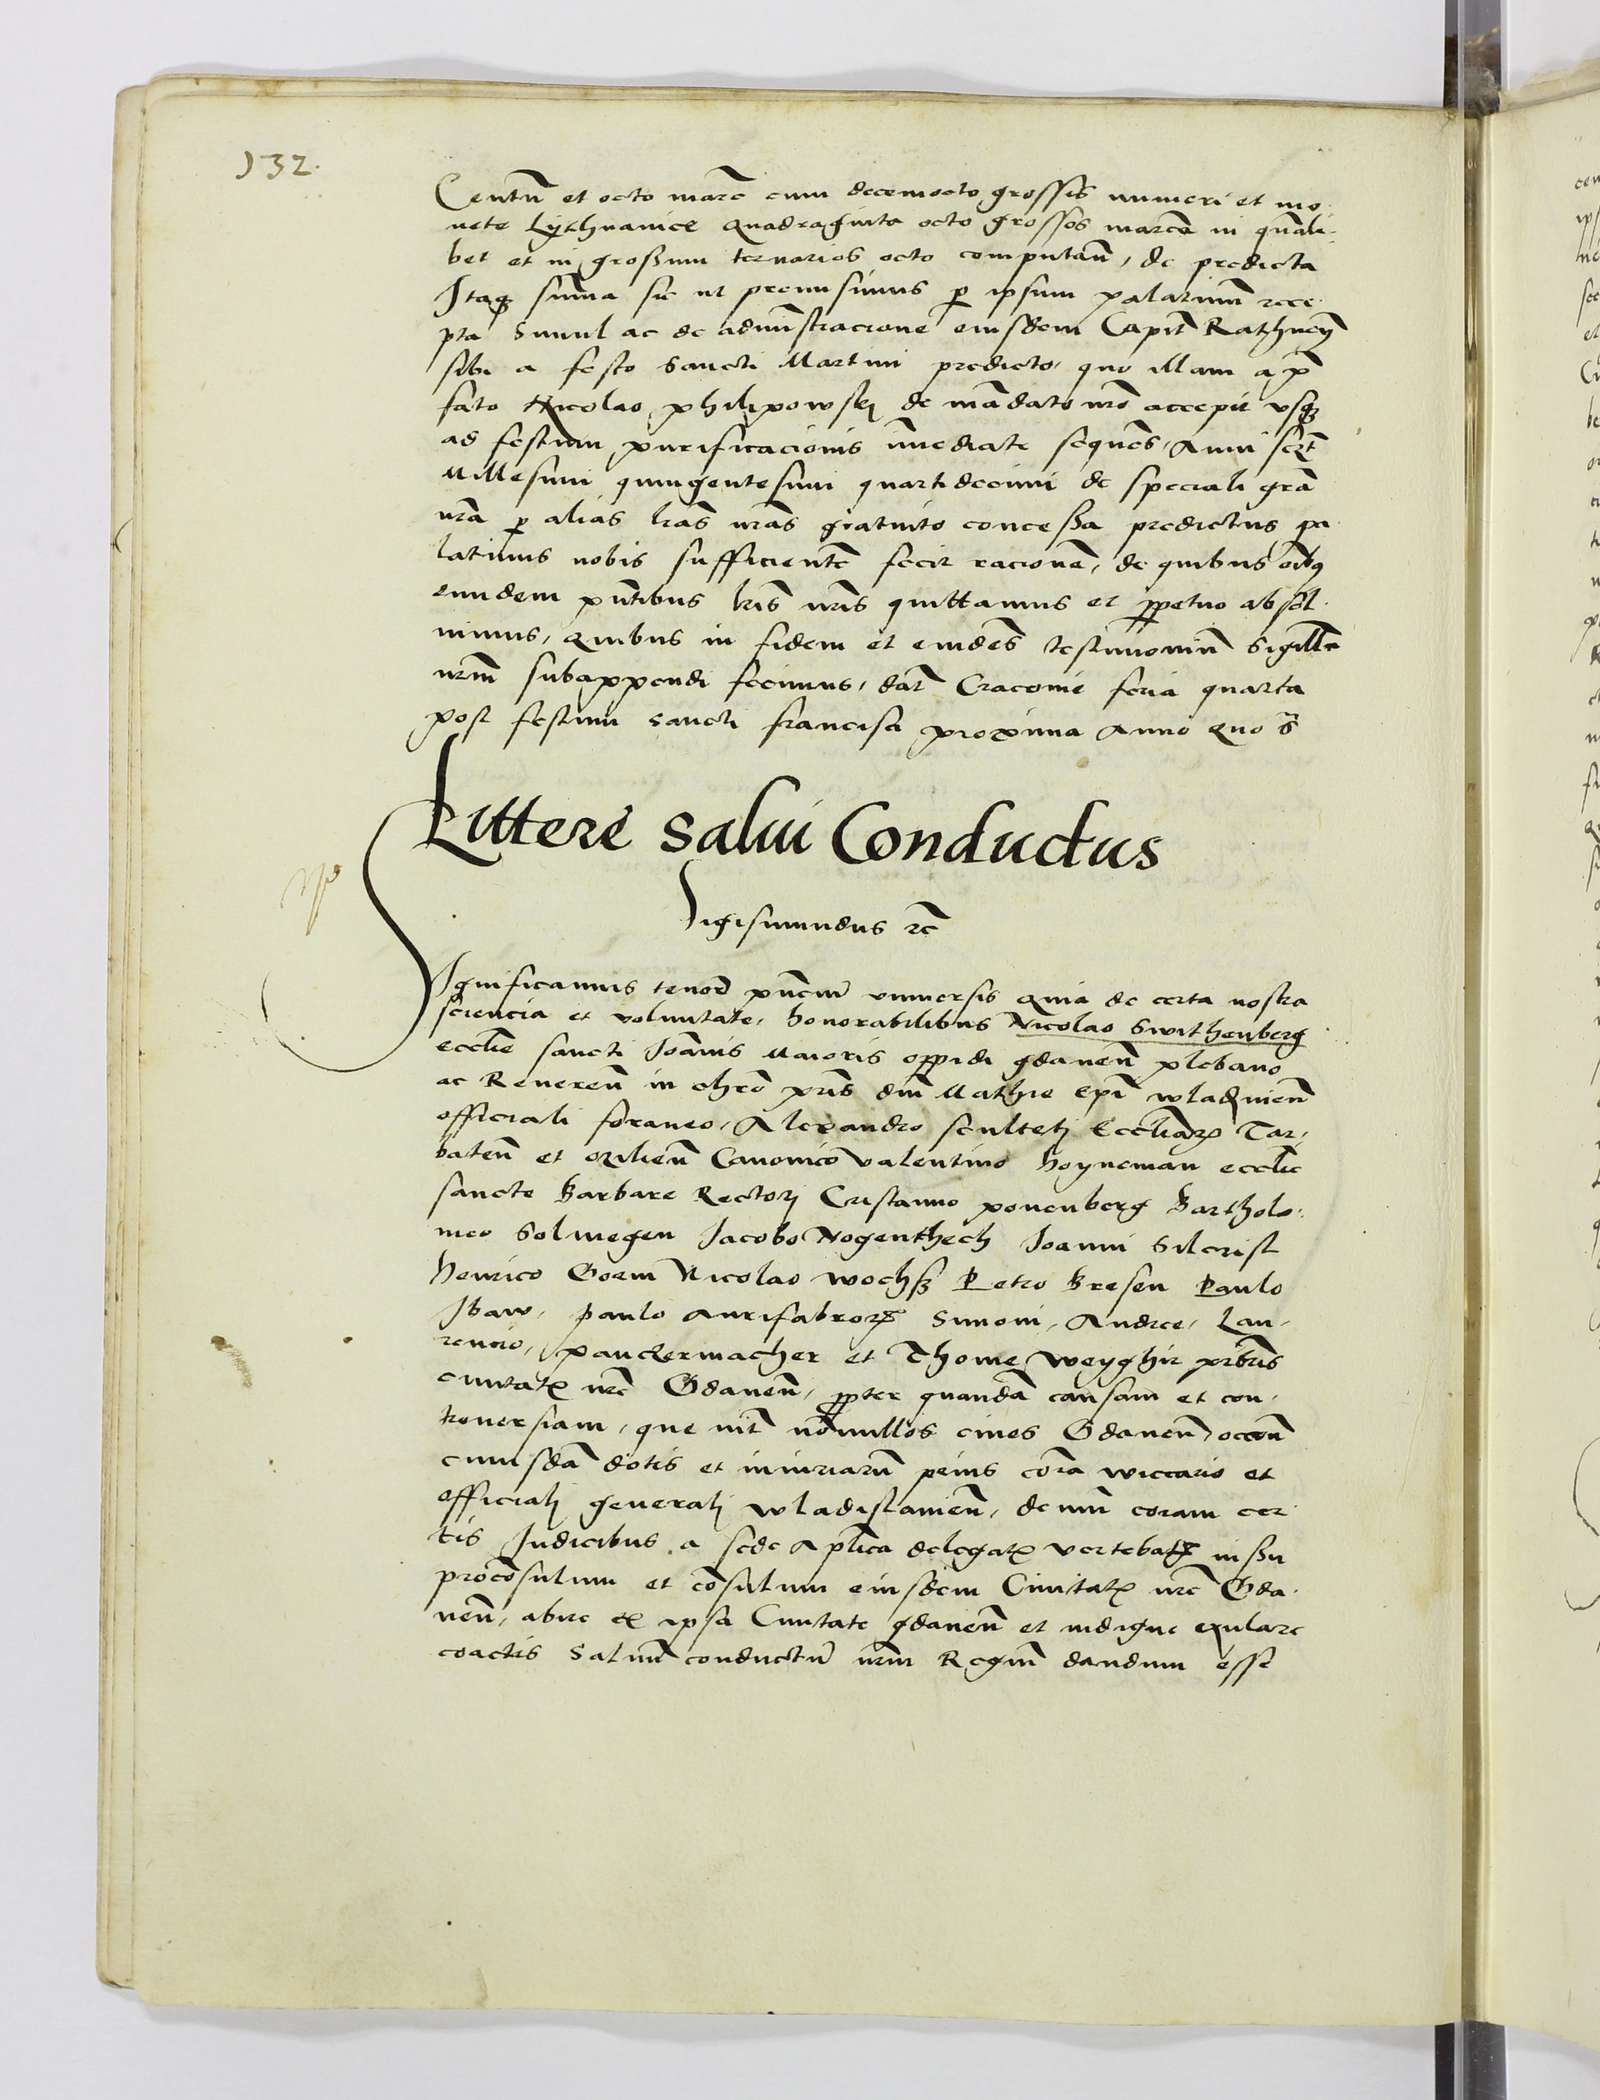 132.
Centu᷈ et octo marc᷈ cum decemocto grossis numeri et mo
nete Lythuanice quadraginta octo grossos marca᷈ in qua᷈li
bet et in grossum ternarios octo computan᷈, de predicta
Itaq᷈ su᷈ma sic ut premisimus p᷈ ipsum palatinu᷈ rece
pta Simul ac de admi᷈stracione eiusdem Capit᷈ Rathnen᷈
sibi a festo Sancti Martini predicto, quo illam a p᷈
fato Nicolao philipowskj de ma᷈dato n᷈ro accepit vsq᷈
ad festum purificacionis i᷈mediate seque᷈s, Anni sc᷈t
Millesimi quingentesimi quartidecimi de speciali gra᷈
n᷈ra p᷈ alias l᷈ras n᷈ras gratuito concessa predictus pa
latinus nobis sufficiente᷈ fecit racione᷈, de quibus o᷈ibq᷈
eundem p᷈ntibus l᷈ris n᷈ris quittamus et p᷈petuo absol
uimus, Quibus in fidem et eiusde᷈ testimoniu᷈ Sigillu᷈
n᷈rm subappendi fecimus, dat᷈ Cracouie feria quarta
post festum sancti francisci proxima Anno quo s᷈
Littere Salui Conductus
Sigismundus r᷈c
Significamus tenor᷈ p᷈ncium vniuersis Quia de certa nostra
sciencia et voluntate, honorabilibus Nicolao Swithenberg
eccl᷈ie sancti Joa᷈nis Maioris oppidi gdanen᷈ plebano
ac Reueren᷈ in chr᷈o p᷈ris d᷈ni Mathie Ep᷈i wladislauien᷈
officiali foraneo, Alexandro scultetj Eccl᷈iarz Tar
baten᷈ et ozilien᷈ Canonico Valentino hoyneman eccl᷈ie
sancte Barbare Rectorj Cristanno ponenberg Bartholo
meo Solmegen Jacobo Nogenthech Joanni Silcrist
henrico Goem Nicolao wochss Petro Bresen Paulo
Jbaw, paulo Aurifabrorz Simoni, Andree, Lau
rencio, pauckermacher et Thome weyghir p᷈rbris
ciuitatz n᷈re Gdanen᷈, p᷈pter quanda᷈ causam et con
trouersiam, que int᷈ no᷈nullos ciues Gdanen᷈ occ᷈on
cuiusda᷈ dotis et iniuriaru᷈ prius cora᷈ viccario et
officialj generalj wladislauien᷈, demu᷈ coram cer
tis Judicibus a sede Ap᷈lica delegatz vertebatz iussu
proco᷈sulum et co᷈sulum eiusdem Ciuitatz n᷈re Gda
nen᷈, abire ex ipsa Ciuitate gdanen᷈ et indigne exulare
coactis Saluu᷈ conductu᷈ n᷈rm Regiu᷈ dandum esse